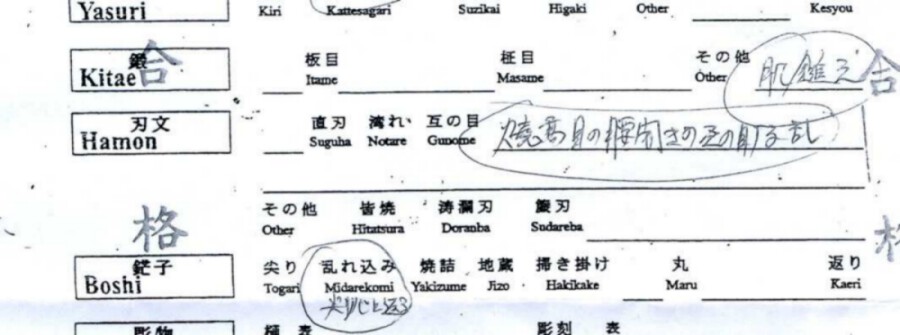 Yasuri Kiri Kattesagari Suzikai Higaki Other Kesyou
鍛 板目 柾目 その他
Kitae Itame Masame Other
合 合
刃文 直刃 湾れ 互の目
Hamon Suguha Notare Gunome 焼高目の
その他 皆焼 涛瀾刃 簾刃
Other Hitatsura Doranba Sudareba
格 格
鋩子 尖り 乱れ込み 焼詰 地蔵 掃き掛け 丸 返り
Boshi Togari Midarekomi Yakizume Jizo Hakikake Maru Kaeri
彫物 樋 表 彫刻 表